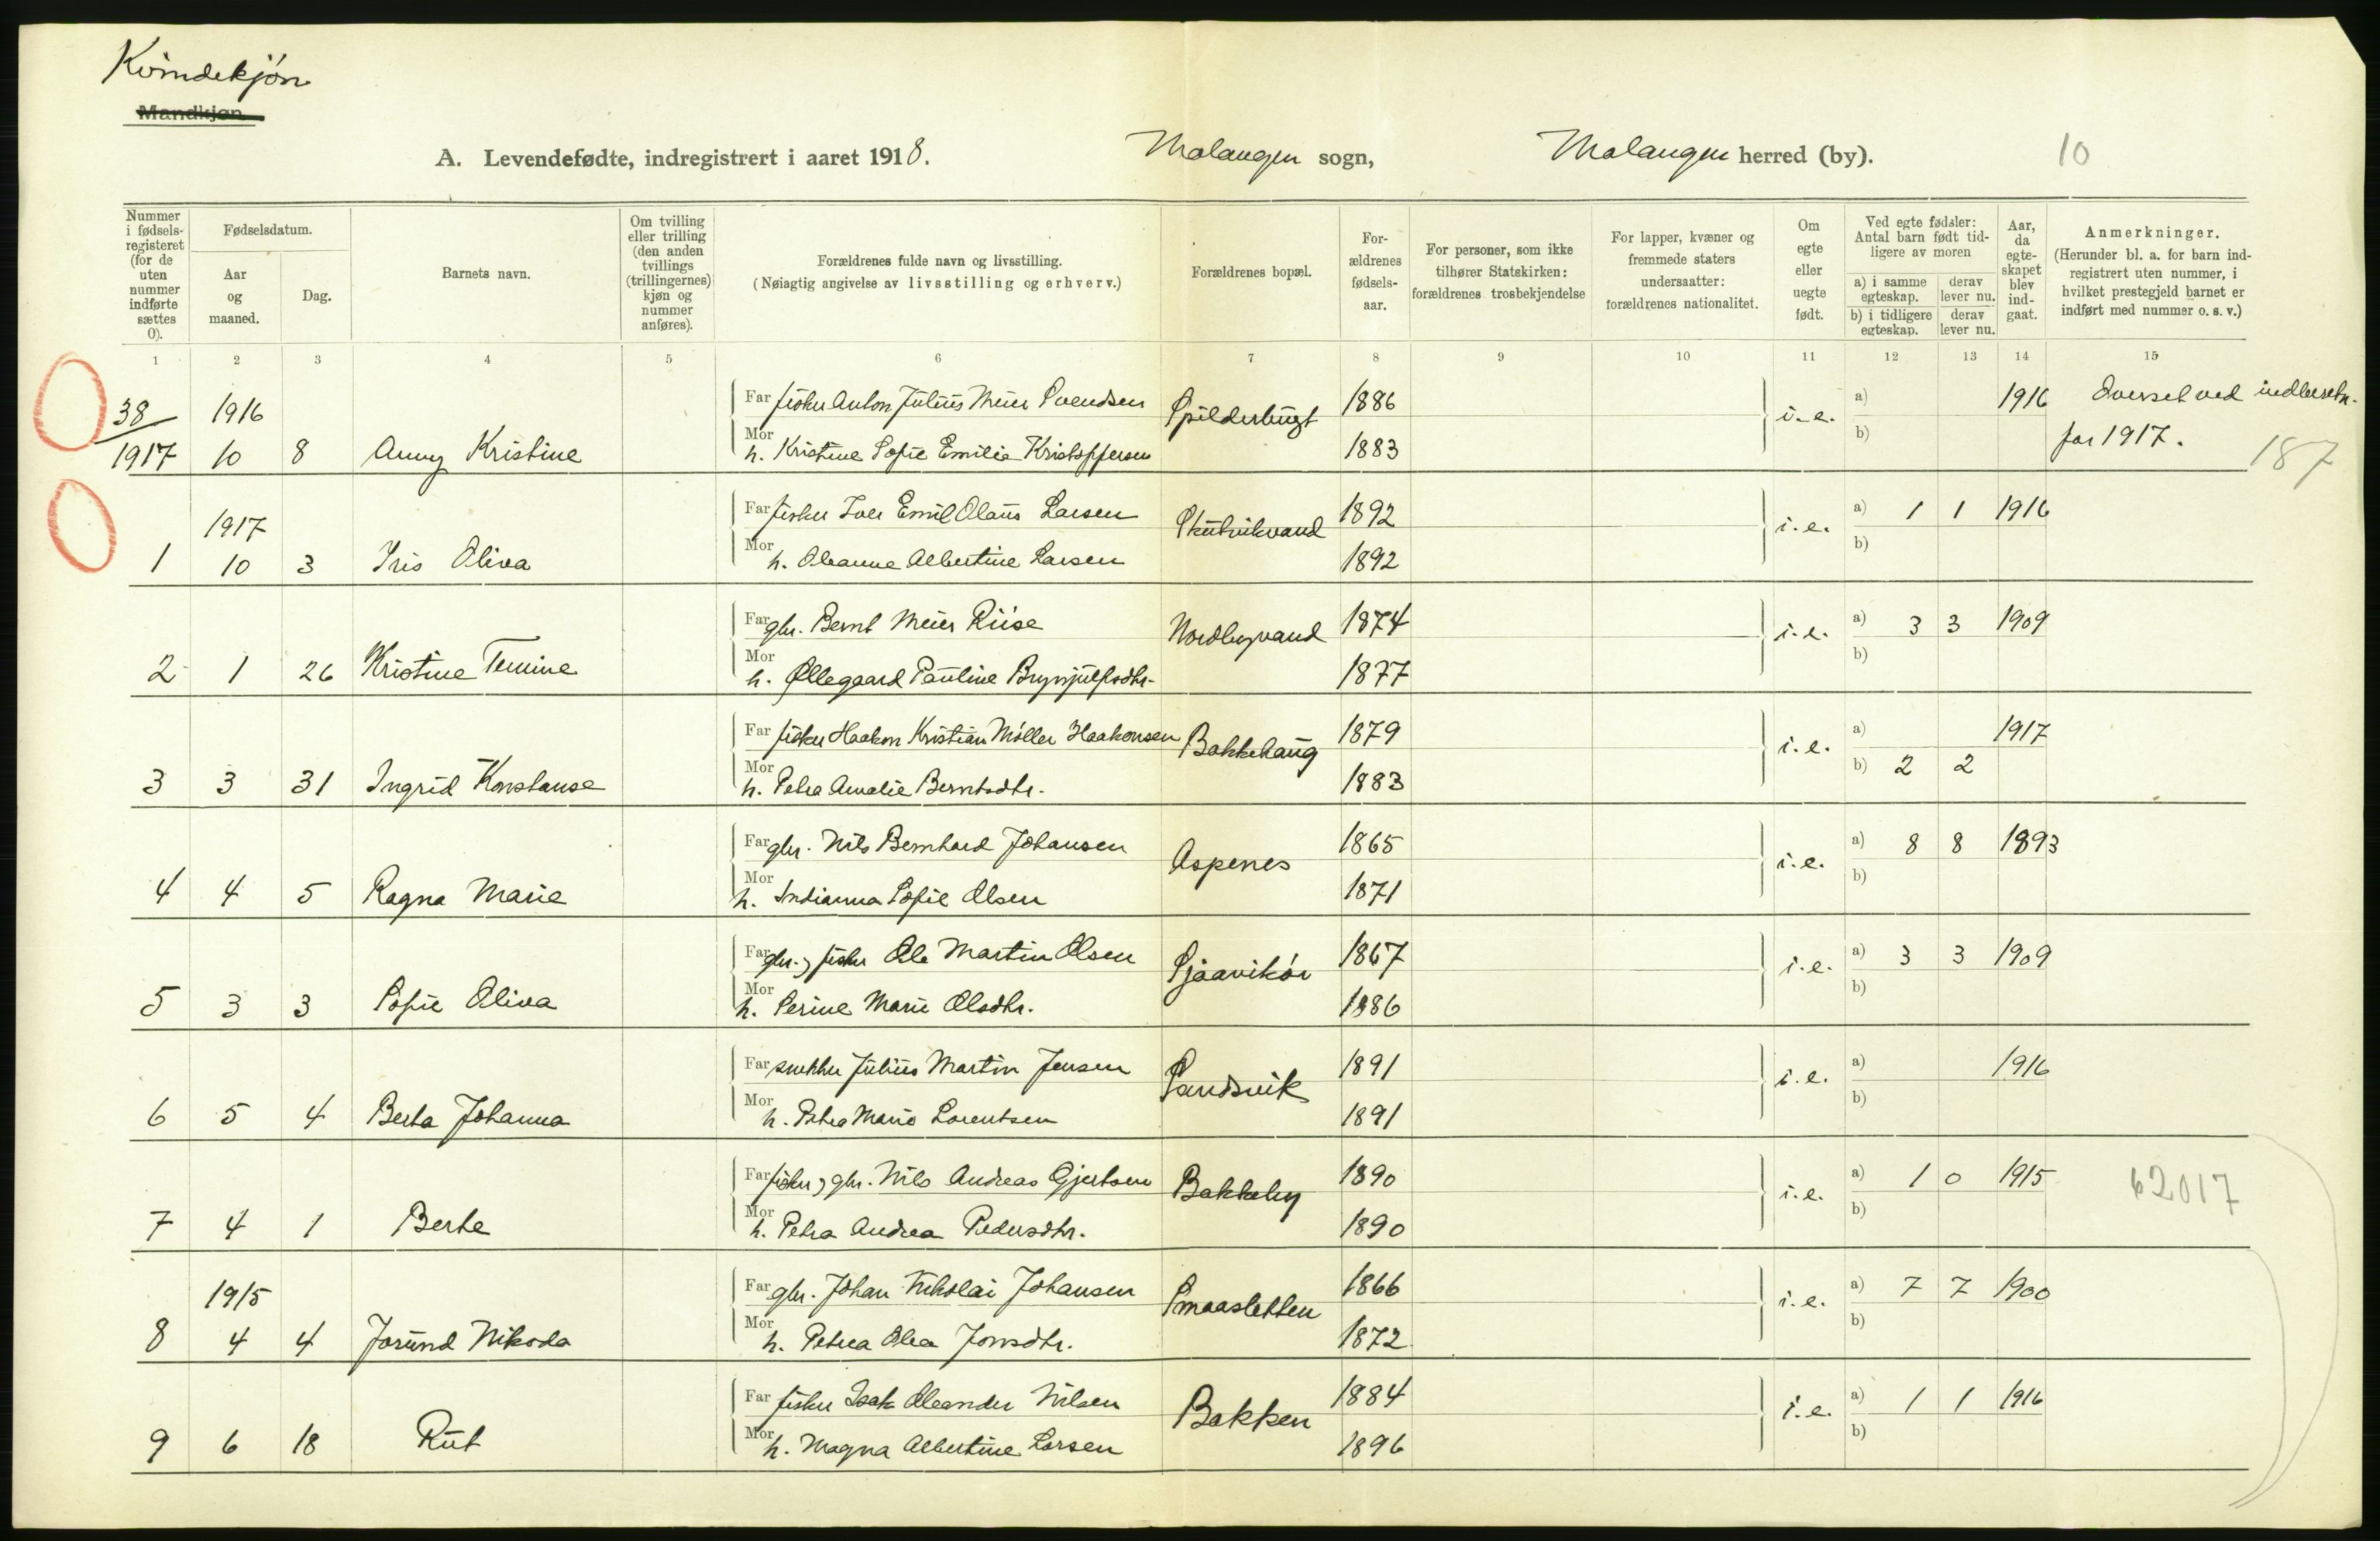 Kvindekjøn
Mandkjøn.
A. Levendefødte, indregistrert i aaret 1918. Malangen sogn, Malangen herred (by). 10
Nummer i fødselsregisteret (for de uten nummer indførte sættes 0).
Fødselsdatum.
Aar og maaned.
Dag.
Barnets navn.
Om tvilling eller trilling (den anden tvillings (trillingernes) kjøn og nummer anføres).
Forældrenes fulde navn og livsstilling.
(Nøiagtig angivelse av livsstilling og erhverv.)
Forældrenes bopæl.
Forældrenes fødselsaar.
For personer, som ikke tilhører Statskirken: forældrenes trosbekjendelse
For lapper, kvæner og fremmede staters undersaatter: forældrenes nationalitet.
Om egte eller uegte født.
Ved egte fødsler: Antal barn født tidligere av moren
a) i samme egteskap. derav lever nu.
b) i tidligere egteskap. derav lever nu.
Aar, da egteskapet blev indgaat.
Anmerkninger.
(Herunder bl. a. for barn indregistrert uten nummer, i hvilket prestegjeld barnet er indført med nummer o. s. v.)
1 2 3 4 5 6 7 8 9 10 11 12 13 14 15
38 1916 Far fisker Anton Julius Meier Svendsen Spilderbugt 1886 i. e. a) 1916 Overset ved indberetn.
1917 10 8 Anny Kristine Mor h. Kristine Sofie Emilie Kristoffersen 1883 b) for 1917. 187
1917 Far fisker Iver Emil Olaus Larsen Skutvikvand 1892 i. e. a) 1 1 1916
1 10 3 Iris Oliva Mor h. Oleanne Albertine Larsen 1892 b)
Far gbr. Bernt Meier Riise Nordbyvand 1874 i. e. a) 3 3 1909
2 1 26 Kristine Temine Mor h. Øllegaard Pauline Brynjulfsdtr. 1877 b)
Far fisker Haakon Kristian Møller Haakonsen Bakkehaug 1879 i. e. a) 1917
3 3 31 Ingrid Konstanse Mor h. Petra Amalie Berntsdtr. 1883 b) 2 2
Far gbr. Nils Bernhard Johansen Aspenes 1865 i. e. a) 8 8 1893
4 4 5 Ragna Marie Mor h. Indianna Sofie Olsen 1871 b)
Far gbr., fisker Ole Martin Olsen Sjaavikør 1867 i. e. a) 3 3 1909
5 3 3 Sofie Oliva Mor h. Serine Marie Olsdtr. 1886 b)
Far snekker Julius Martin Jensen Sandsvik 1891 i. e. a) 1916
6 5 4 Berta Johanna Mor h. Petra Marie Lorentsen 1891 b)
Far fisker, gbr. Nils Andreas Gjertsen Bakkeby 1890 i. e. a) 1 0 1915 62017
7 4 1 Berte Mor h. Petra Andrea Pedersdtr. 1890 b)
1915 Far gbr. Johan Nikolai Johansen Smaasletten 1866 i. e. a) 7 7 1900
8 4 4 Jorund Nikoda Mor h. Petrea Olea Jonsdtr. 1872 b)
Far fisker Isak Oleander Nilsen Bakken 1884 i. e. a) 1 1 1916
9 6 18 Rut Mor h. Magna Albertine Larsen 1896 b)